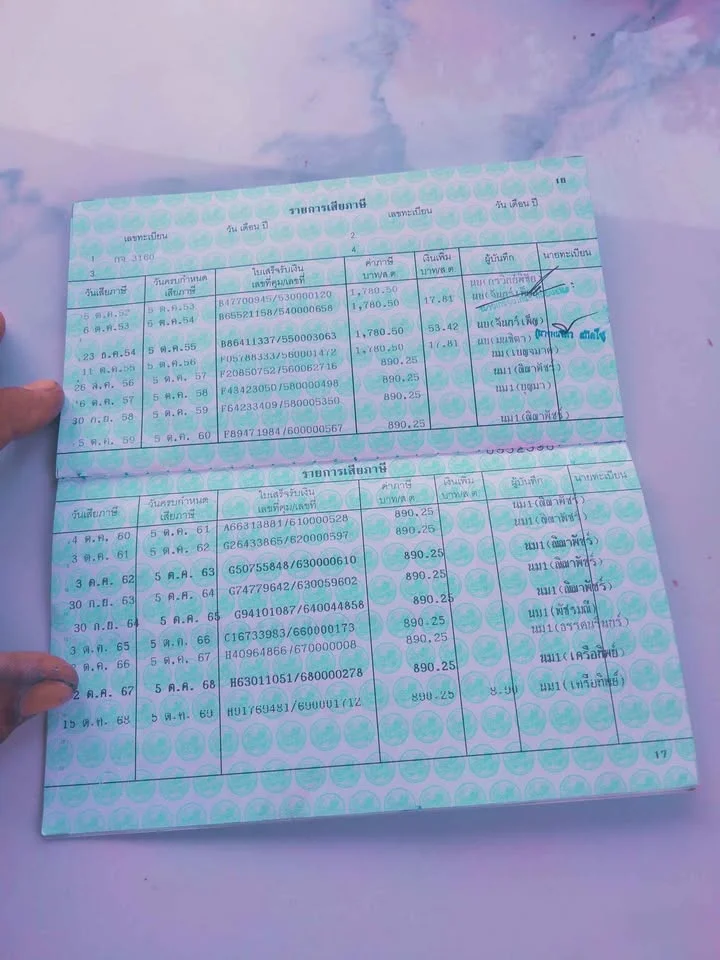 16
รายการเสียภาษี
เลขทะเบียน วัน เดือน ปี เลขทะเบียน วัน เดือน ปี
1. กจ 3160 2.
3. 4.
วันเสียภาษี วันครบกำหนดเสียภาษี ใบเสร็จรับเงินเลขที่คุม/เลขที่ ค่าภาษี บาท/ส.ต เงินเพิ่ม บาท/ส.ต ผู้บันทึก นายทะเบียน
5 ต.ค.52 5 ต.ค.53 B47700945/530000120 1,780.50
6 ต.ค.53 5 ต.ค.54 B65521158/540000658 1,780.50 17.81 นย(จันทร์เพ็ญ)
23 ธ.ค.54 5 ต.ค.55 B86411337/550003063 1,780.50 53.42 นย(จันทร์เพ็ญ)
11 ต.ค.55 5 ต.ค.56 F05788333/560001472 1,780.50 17.81
26 ส.ค. 56 5 ต.ค. 57 F20850752/560062716 890.25 นม(เบญจมาศ)
6 ต.ค. 57 5 ต.ค. 58 F43423050/580000498 890.25 นม1(ลิษาพัชร์)
30 ก.ย. 58 5 ต.ค. 59 F64233409/580005350 890.25
5 ต.ค. 59 5 ต.ค. 60 F89471984/600000567 890.25 นม1(ลิษาพัชร์)
รายการเสียภาษี
วันเสียภาษี วันครบกำหนดเสียภาษี ใบเสร็จรับเงินเลขที่คุม/เลขที่ ค่าภาษี บาท/ส.ต เงินเพิ่ม บาท/ส.ต ผู้บันทึก นายทะเบียน
4 ต.ค. 60 5 ต.ค. 61 A66313881/610000528 890.25 นม1(ลิษาพัชร์)
3 ต.ค. 61 5 ต.ค. 62 G26433865/620000597 890.25 นม1(ลิษาพัชร์)
3 ต.ค. 62 5 ต.ค. 63 G50755848/630000610 890.25 นม1(ลิษาพัชร์)
30 ก.ย. 63 5 ต.ค. 64 G74779642/630059602 890.25 นม1(ลิษาพัชร์)
30 ก.ย. 64 5 ต.ค. 65 G94101087/640044858 890.25 นม1(พัชรมณี)
3 ต.ค. 65 5 ต.ค. 66 C16733983/660000173 890.25
2 ต.ค. 66 5 ต.ค. 67 H40964866/670000008 890.25
2 ต.ค. 67 5 ต.ค. 68 H63011051/680000278 890.25 นม1(เครือทิพย์)
15 ต.ค. 68 5 ต.ค. 69 H01769481/690001712 890.25 8.90 นม1(เครือทิพย์)
17